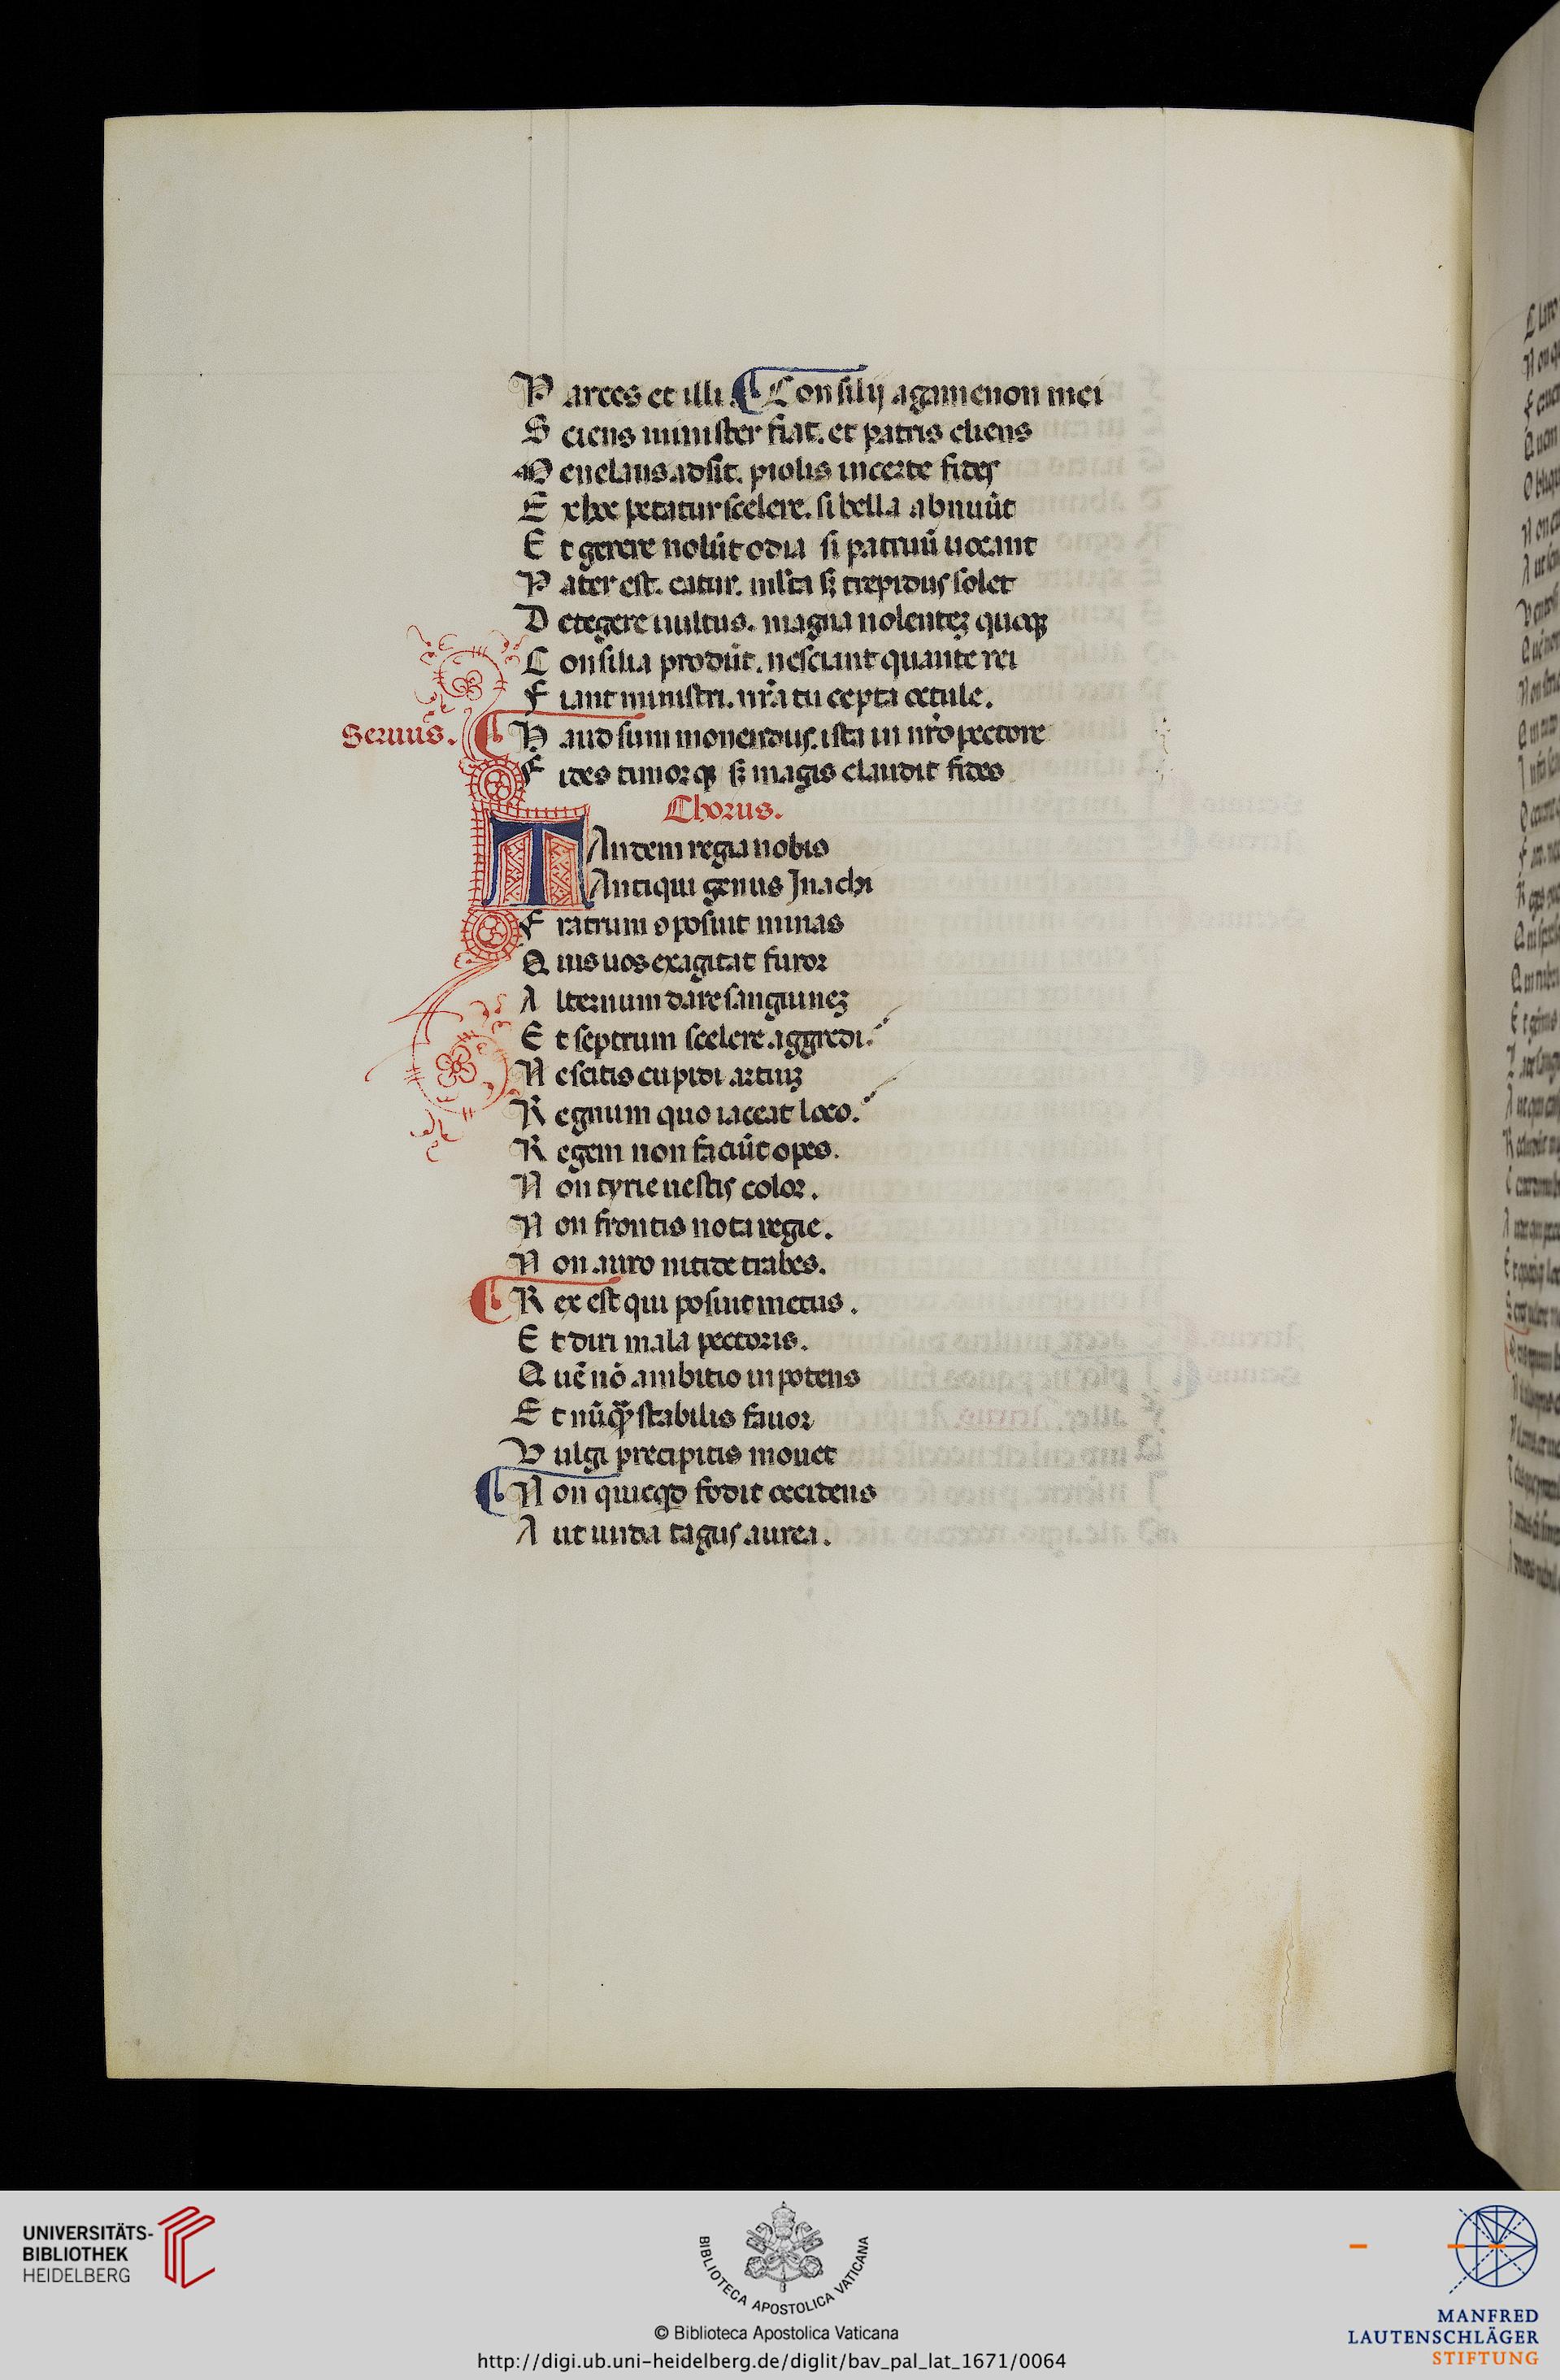 P artes et illi ¶ Consilij agamenon mei
S ciens minister fiat. et patris cliens
M enelaus adsit. prolis incerte fides
E x hoc petatur scelere. si bella abnuūt
E t gerere nolūt odia si patruū uocant
P ater est. eatur. ml̄ta sꝫ trepidus solet
D etegere uultus. magna nolenteꝫ quoqꝫ
C onsilia produt̄. nesciant quante rei
F iant ministri. nr̄a tu cepta occule.
Seruus. ¶ H aud sum monendus. ista in nr̄o pectore
F ides timorqꝫ sꝫ magis claudit fides
Chorus.
TAndem regia nobis
Antiqui genus Inachi
F ratrum oposuit minas
Q uis uos exagitat furor
A lternum dare sanguineꝫ
E t septrum scelere aggredi.
N escitis cupidi artiuꝫ
R egnum quo iaceat loco.
R egem non faciūt opes.
N on tyrie uestis color.
N on frontis nota regie.
N on auro nitide trabes.
¶ R ex est qui posuit metus.
E t diri mala pectoris.
Q uē nō ambitio inpotens
E t nūqꝫ stabilis fauor
V ulgi precipitis mouet
¶ N on quicqd fodit occidens
A ut unda tagus aurea.
UNIVERSITÄTS-
BIBLIOTHEK
HEIDELBERG
BIBLIOTECA APOSTOLICA VATICANA
© Biblioteca Apostolica Vaticana
http://digi.ub.uni-heidelberg.de/diglit/bav_pal_lat_1671/0064
MANFRED
LAUTENSCHLÄGER
STIFTUNG